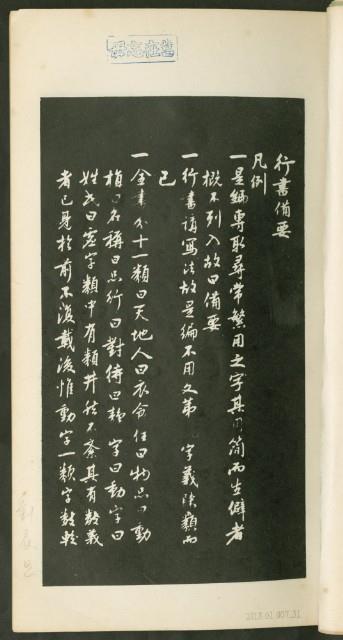 行書備要
凡例
一是編專取尋常繁用之字其用簡而生僻者
概不列入故曰備要
一行書講寫法故是編不用文第 字義陳類而
已
一全書分十一類曰天地人曰衣食住曰物品曰動
植曰名稱曰品行曰對待曰静字曰動字曰
姓氏曰虛字類中有類井然不紊其有數義
者已見於前不復載後惟動字一類字數較
2018.01.007.31